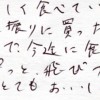 しく食べてい
振りに買った
で、今近に食
っと飛びつ
とてもおいし